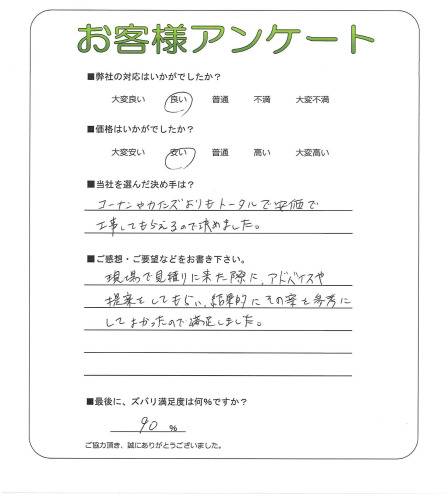 お客様アンケート
■弊社の対応はいかがでしたか？
大変良い 良い 普通 不満 大変不満
■価格はいかがでしたか？
大変安い 安い 普通 高い 大変高い
■当社を選んだ決め手は？
コーナンやカインズよりもトータルで安価で
工事してもらえるので決めました。
■ご感想・ご要望などをお書き下さい。
現場で見積りに来た際に、アドバイスや
提案をしてもらい、結果的にその案を参考に
してよかったので満足しました。
■最後に、ズバリ満足度は何%ですか？
90 %
ご協力頂き、誠にありがとうございました。